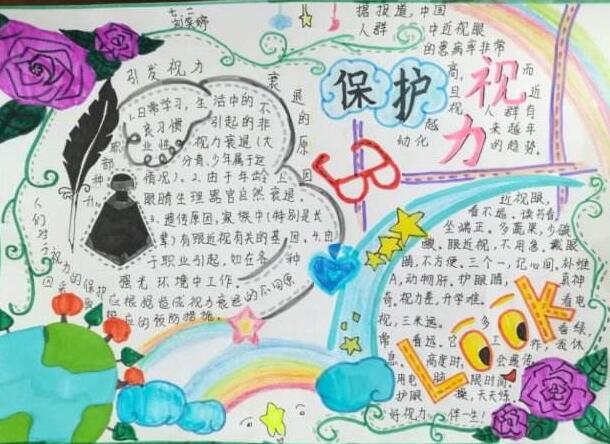 七.二
引发视力
衰退的原因
1.日常学习,生活中的不
良习惯引起的非
职业性视力衰退(大
部分青,少年属于这
种情况)。2.由于年龄上升,
眼睛生理器官自然衰退。
3.遗传原因,家族中(特别是长
辈)有跟近视有关的基因。4.由
于职业引起,如在各种
强光环境中工作。
人们对于视力的保护
应根据造成视力衰退的不同原因采取
相应的预防措施。
保护视力
据报道,中国
人群中近视眼
的患病率非常
高,而
且近
视人群自
越来越年
幼化的趋势。
近视眼,
看不远。读书看,
坐端正。多蔬果,少碳
酸。眼近视,不用急。戴眼
睛,不方便。三个一,记心间。补维
A,动物肝。护眼睛,真神
奇。视力差,升学难。看电
视,三米远。多看绿,
常看远。它工作,我休
息。高度时,会遗传。
用电脑限时间。
护眼操,天天练。
好视力,伴一生!
Look